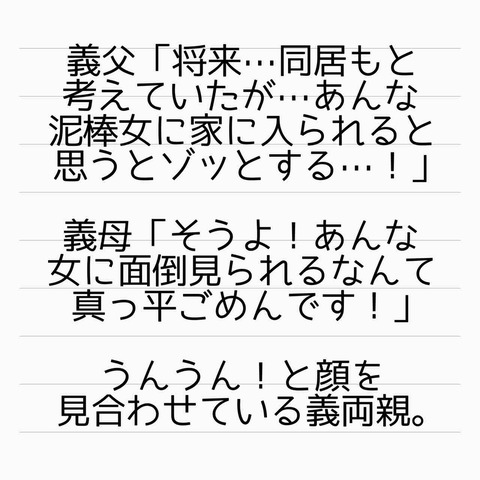 義父「将来…同居もと
考えていたが…あんな
泥棒女に家に入られると
思うとゾッとする…！」
義母「そうよ！あんな
女に面倒見られるなんて
真っ平ごめんです！」
うんうん！と顔を
見合わせている義両親。